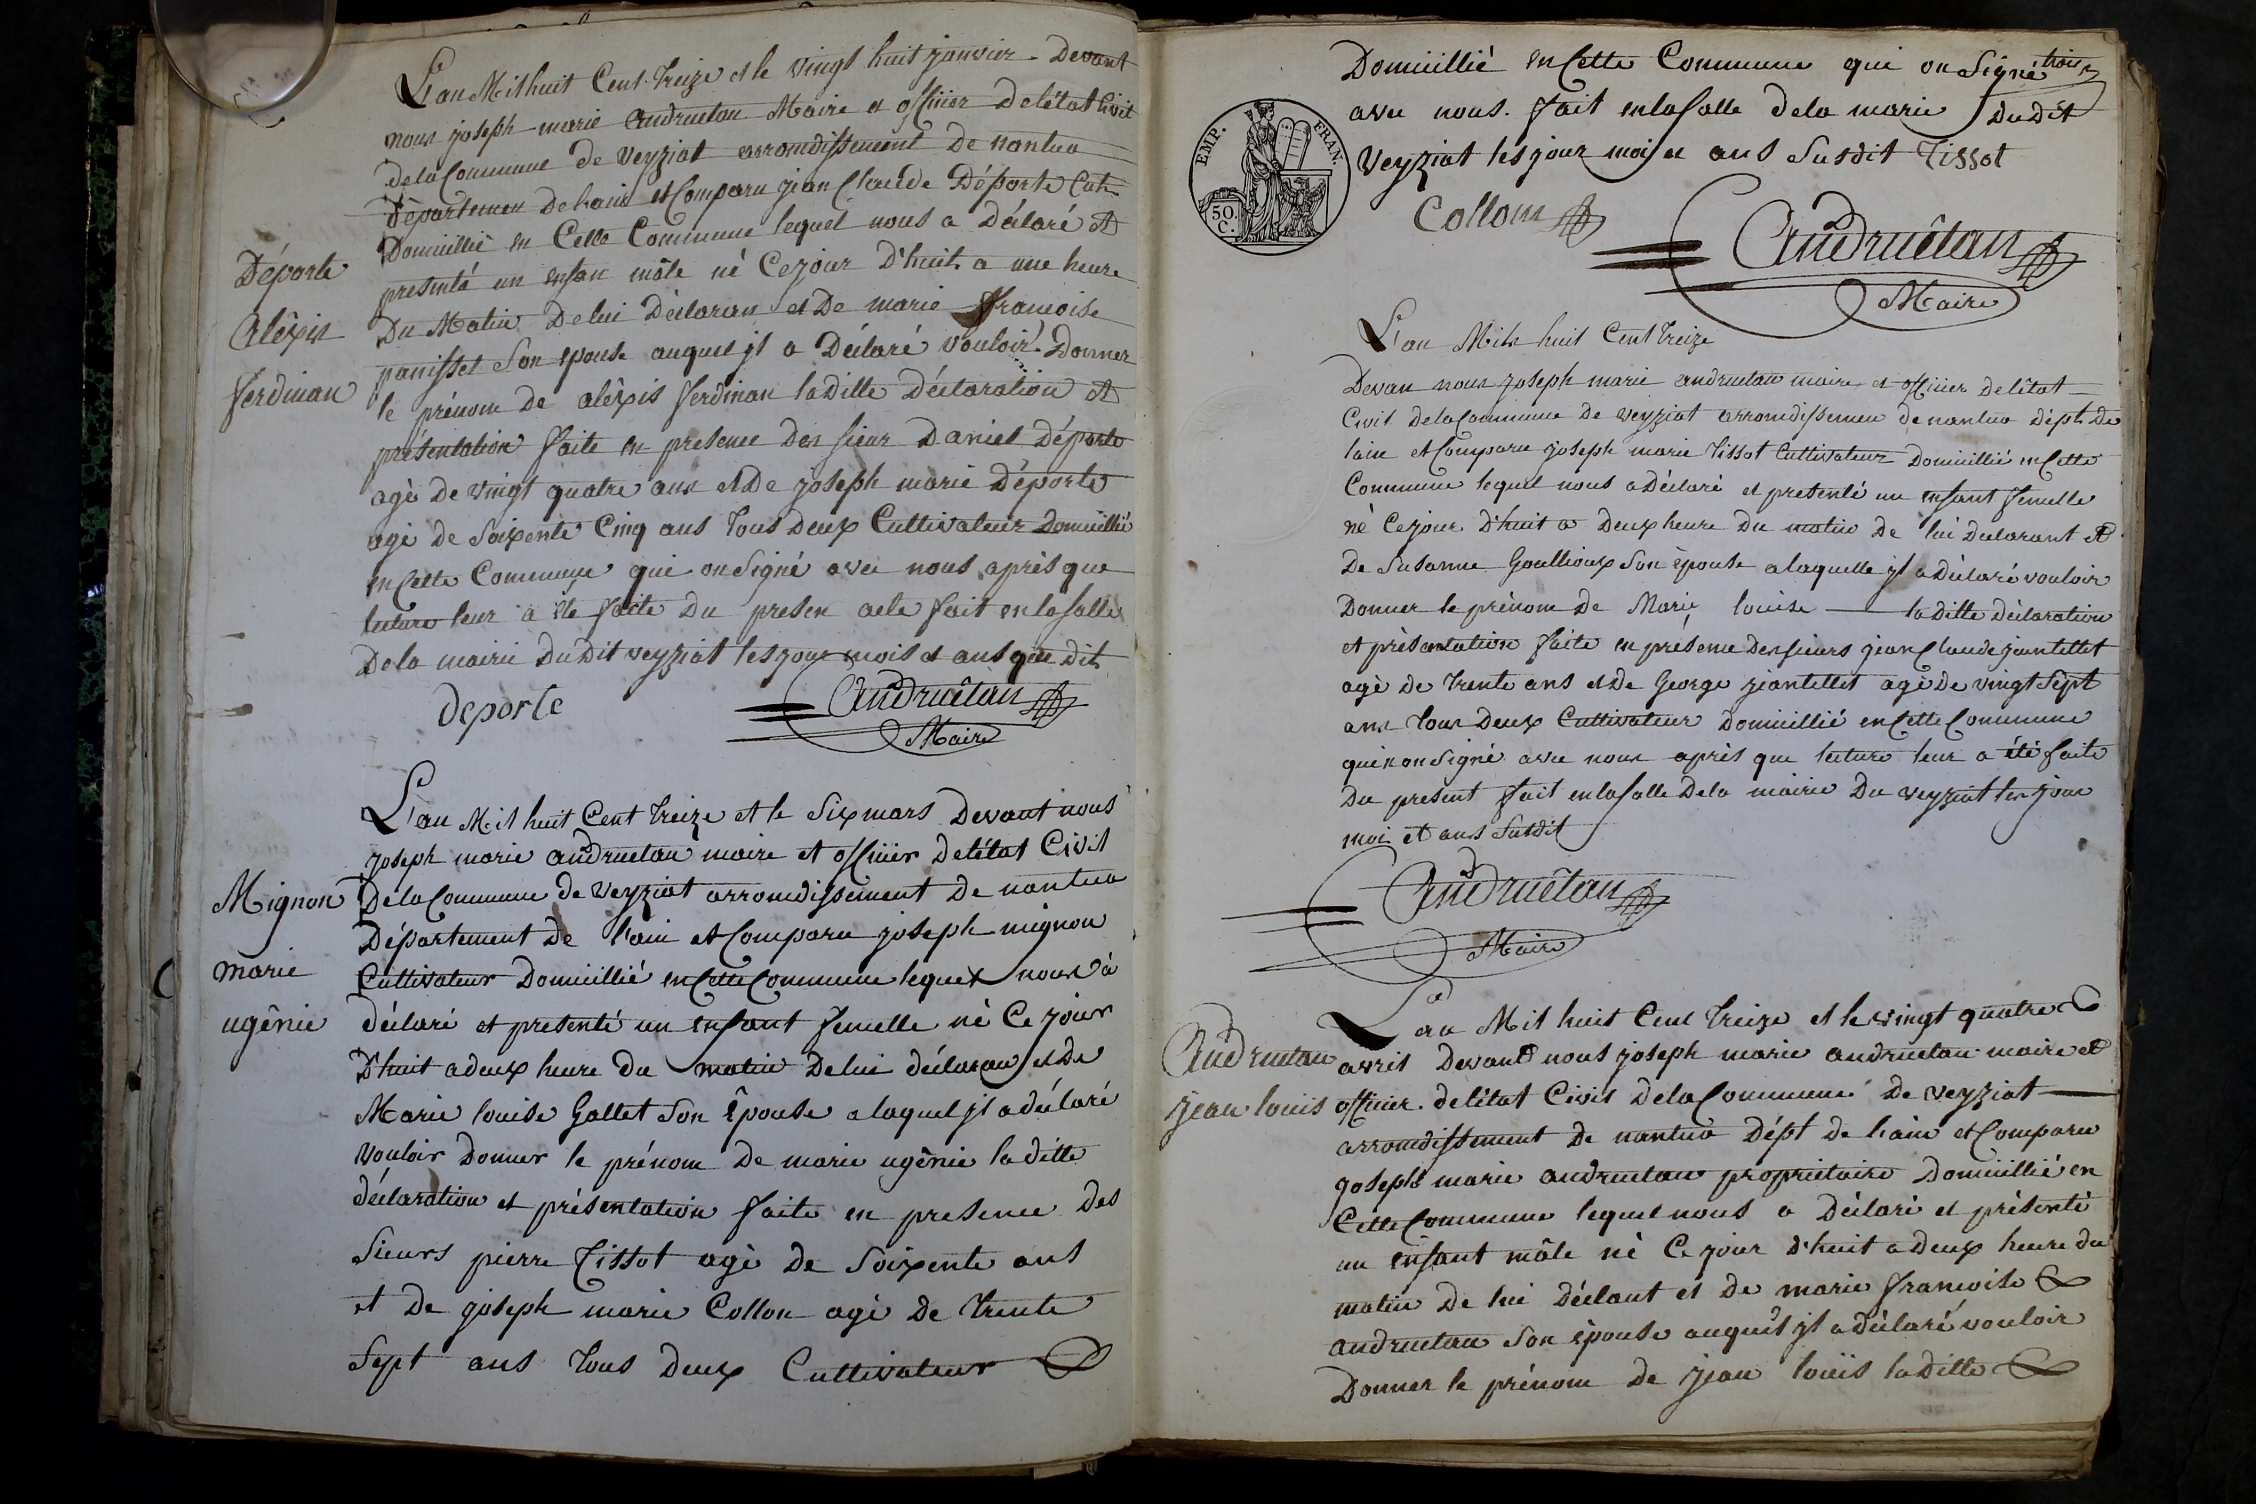 L'an Mil huit Cent Treize et le vingt huit janvier Devant
nous joseph marie andruetan Maire et officier Delétat Civil
dela Commune de veyziat arromdissement De nantua
Département De l'ain et Comparu jean Claude Déporte Cult.
Domicillié en Cette Commune lequel nous a Déclaré et
presenté un enfan mâle né Cejour D'huit a une heure
Du Matin De lui Déclaran et De marie francoise
panisset Son epouse auquel jl a Déclaré vouloir Donner
le prénom De alèxis ferdinan la Ditte Déclaration et
présentation faite en presence Des sieur Daniel Déporte
agè De vingt quatre ans et De joseph marie Déporte
agè de Soixente Cinq ans Tous Deux Cultivateur Domicillié
en Cette Commune qui on Signé avec nous après que
lecture leur a été faite Du presen acte fait en la Salle
De la mairie Du Dit veyziat les jour mois et ans que dit
Déporte
Alèxis
ferdinan
deporte
Andruêtan
Maire
L'an Mil huit Cent Treize et le Six mars Devant nous
joseph marie andruetan maire et officier Delétat Civil
Dela Commune de veyziat arromdissement De nantua
Département De l'ain et Comparu joseph mignon
Cultivateur Domicillié en Cette Commune lequel nous à
déclaré et presenté un enfant femelle né Ce jour
D'huit a deux heure Du matin De lui déclaran et De
Marie louise Gallet Son Épouse a laquel jl a déclaré
vouloir Donner le prénom De marie ugènie la ditte
déclaration et présentation faite en presence Des
Sieurs pierre Tissot agè De Soixente ans
et De joseph marie Collon agè De Trente
Sept ans Tous Deux Cultivateur
Mignon
marie
ugênie
Domicillié en Cette Commune qui on Signé trois
avec nous. fait en la Salle De la marie Du Dit
veyziat les jour mois et ans Susdit Tissot
EMP. FRAN.
50. C.
Collom
Andruêtan
Maire
L'an Mil huit Cent Treize
Devan nous joseph marie andruetan maire et officier Delétat
Civil De la Commune De veyziat arromdissemen de nantua Dépt. De
lain et Comparu joseph marie Tissot Cultivateur Domicillié en Cette
Commune lequel nous a Déclaré et presenté un enfant femelle
né Ce jour D'huit a Deux heure Du matin De lui Declarant et
De Susanne Goullioux Son èpouse a laquelle jl a Déclaré vouloir
Donner le prénom De Marie louise la Ditte Déclaration
et présentation faite en présence Des sieurs jean Claude jeantellet
agè De Trente ans et De George jeantellet agè De vingt Sept
ans Tous Deux Cultivateur Domicillié en Cette Commune
qui non Signé avec nous après que lecture leur a été faite
Du present fait en la Salle De la mairie Du veyziat les jour
moi et ans Susdit
Andruêtan
Maire
Andruetan
jean louis
L'an Mil huit Cent Treize et le vingt quatre
avril Devant nous joseph marie andruetan maire et
officier delétat Civil De la Commune De veyziat
arromdissement De nantua Dépt de l'ain et Comparu
joseph marie andruetan proprietaire Domicillié en
Cette Commune lequel nous a Déclaré et présenté
un enfant mâle né Ce jour d'huit a deux heure du
matin De lui Déclant et De marie francoise
andruetan Son èpouse auquel jl a déclaré vouloir
Donner le prénom De jean louis la Ditte